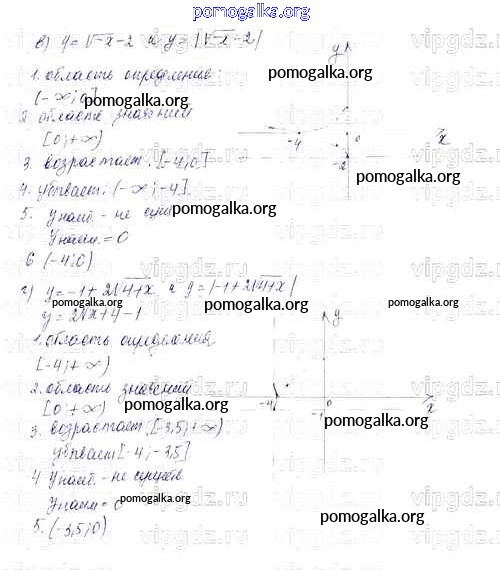 pomogalka.org
в) y = √-x - 2 и y = |√-x - 2|
1. область определения:
(-∞; 0]
2 область значений
[0; +∞)
3. возрастает: [-4; 0]
4. убывает: (-∞; -4]
5. Унаиб. - не сущ
Унаим. = 0
6 (-4; 0)
г) y = -1 + 2√4+x и y = |-1 + 2√4+x|
y = 2√x+4 - 1
1. область определения
[-4; +∞)
2. область значений
[0; +∞)
3. возрастает [-3,5; +∞)
убывает [-4; -3,5]
4 Унаиб. - не существ
Унаим = 0
5. (-3,5; 0)
y
-4
0
-2
x
y
-4
0
-1
x
pomogalka.org
pomogalka.org
pomogalka.org
pomogalka.org
pomogalka.org
pomogalka.org
pomogalka.org
pomogalka.org
pomogalka.org
pomogalka.org
pomogalka.org
vipgdz.ru
vipgdz.ru
vipgdz.ru
vipgdz.ru